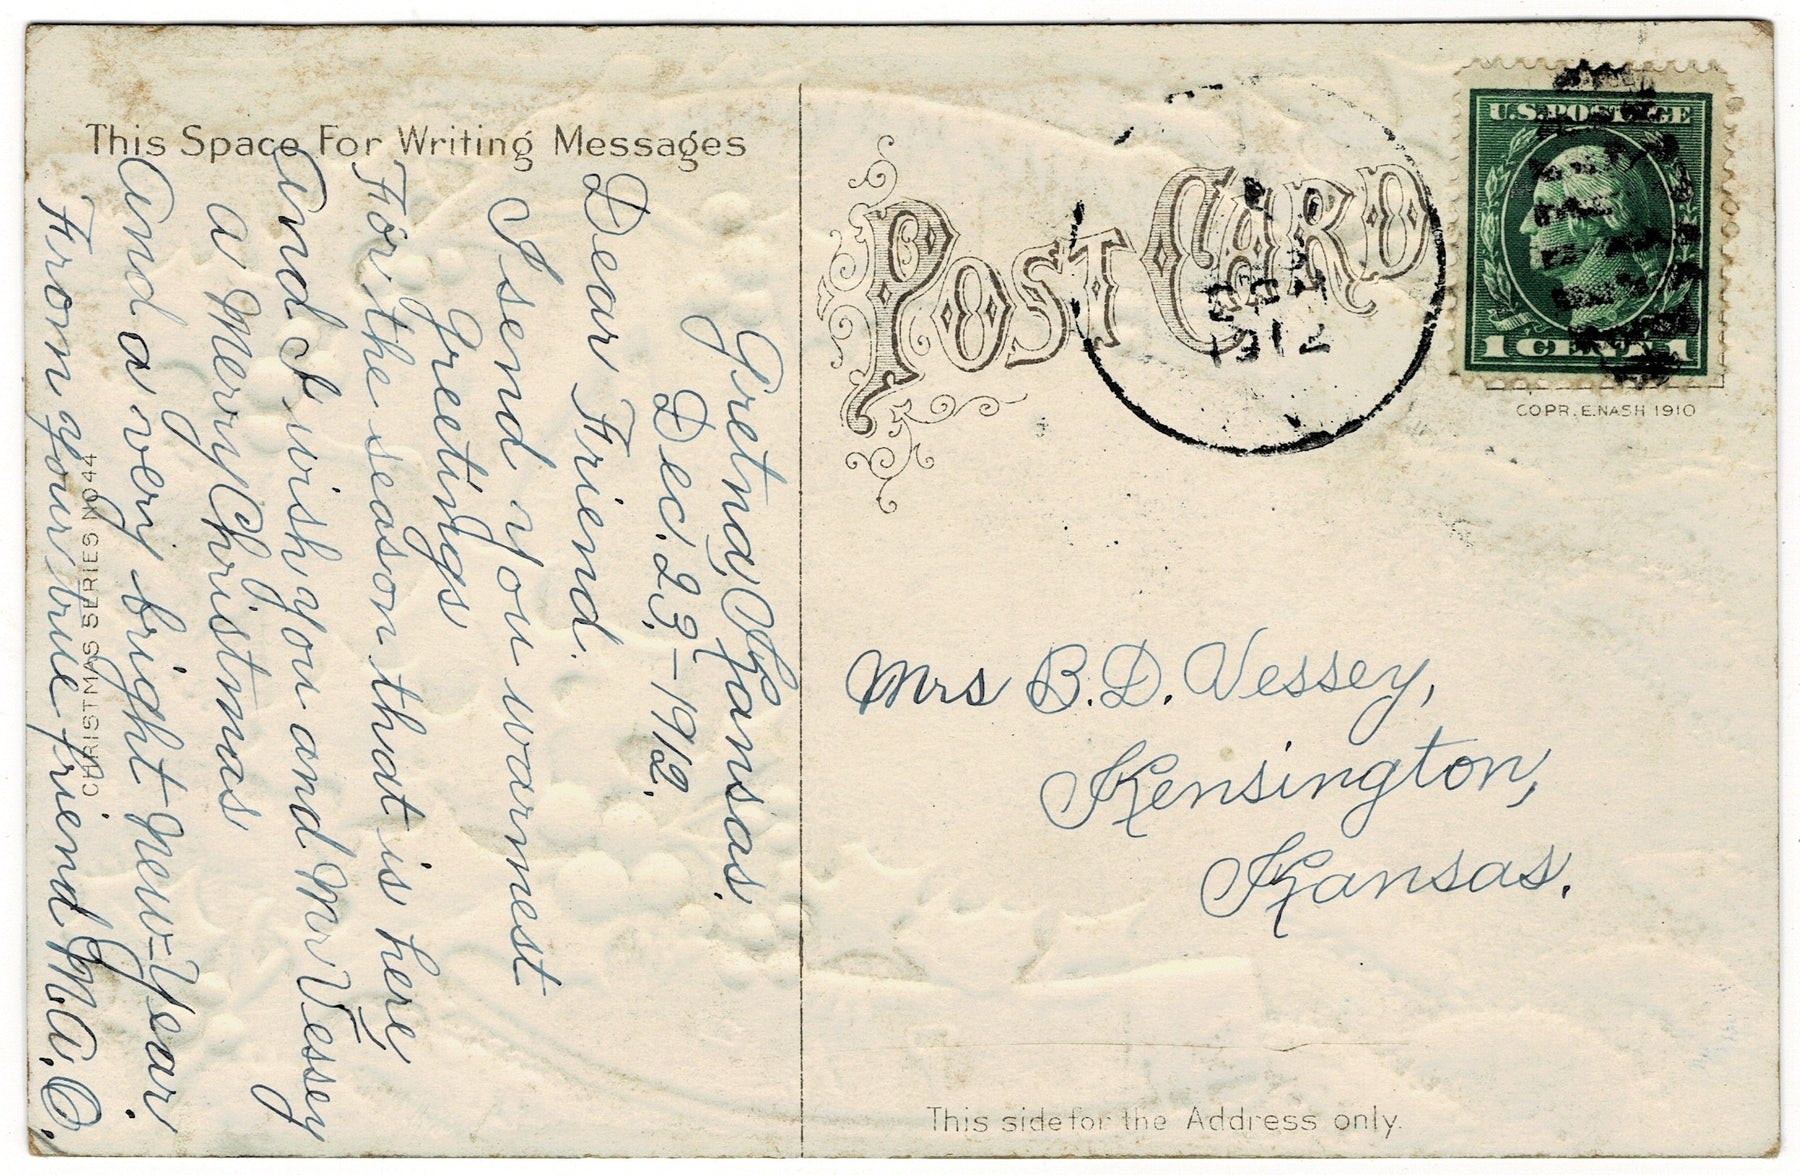 This Space For Writing Messages
Gretna, Kansas.
Dec. 23-1912.
Dear Friend.
I send you warmest
Greetings
For the season that is here,
And I wish you and Mr Vessey
a Merry Christmas
And a very bright New-Year.
From your true friend M. A. O.
CHRISTMAS SERIES NO 44
POST CARD
1912
U.S. POSTAGE
1 CENT 1
COPR. E. NASH 1910
Mrs B. D. Vessey,
Kensington,
Kansas.
This side for the Address only.